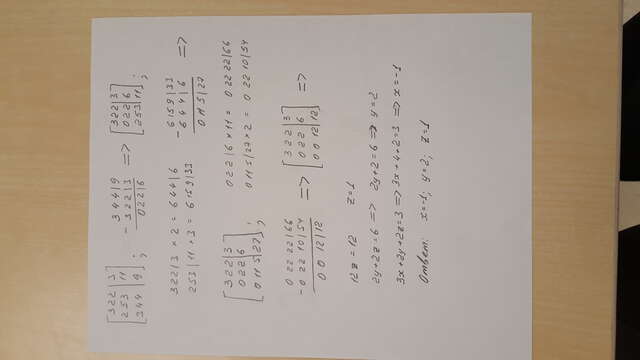 [3 2 2 | 3
2 5 3 | 11
3 4 4 | 9] ;
3 4 4 | 9
- 3 2 2 | 3
0 2 2 | 6
=> [3 2 2 | 3
0 2 2 | 6
2 5 3 | 11] ;
3 2 2 | 3 × 2 = 6 4 4 | 6
2 5 3 | 11 × 3 = 6 15 9 | 33
- 6 15 9 | 33
6 4 4 | 6
0 11 5 | 27
=>
[3 2 2 | 3
0 2 2 | 6
0 11 5 | 27] ;
0 2 2 | 6 × 11 = 0 22 22 | 66
0 11 5 | 27 × 2 = 0 22 10 | 54
0 22 22 | 66
- 0 22 10 | 54
0 0 12 | 12
=> [3 2 2 | 3
0 2 2 | 6
0 0 12 | 12] =>
12z = 12 z = 1
2y + 2z = 6 => 2y + 2 = 6 => y = 2
3x + 2y + 2z = 3 => 3x + 4 + 2 = 3 => x = -1
Ответ: x = -1; y = 2; z = 1